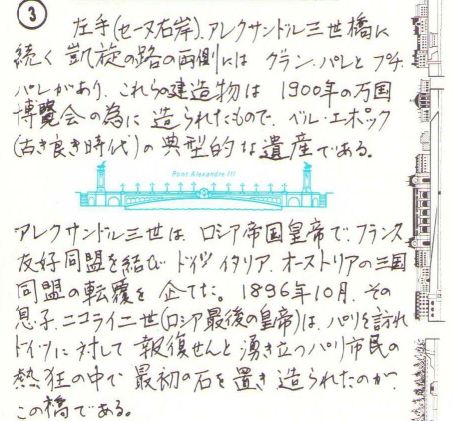 ③
左手(セーヌ右岸)、アレクサンドル三世橋に
続く 凱旋の路の両側には グラン・パレと プチ・
パレがあり、これらの建造物は 1900年の万国
博覧会の為に 造られたもので、ベル・エポック
(古き良き時代)の 典型的な遺産である。
Pont Alexandre III
アレクサンドル三世は、ロシア帝国皇帝で、フランス
友好同盟を結び ドイツ、イタリア、オーストリアの三国
同盟の転覆を 企てた。1896年10月、その
息子、ニコライ二世(ロシア最後の皇帝)は、パリを訪れ
ドイツに対して 報復せんと 湧き立つパリ市民の
熱狂の中で 最初の石を置き 造られたのが、
この橋である。